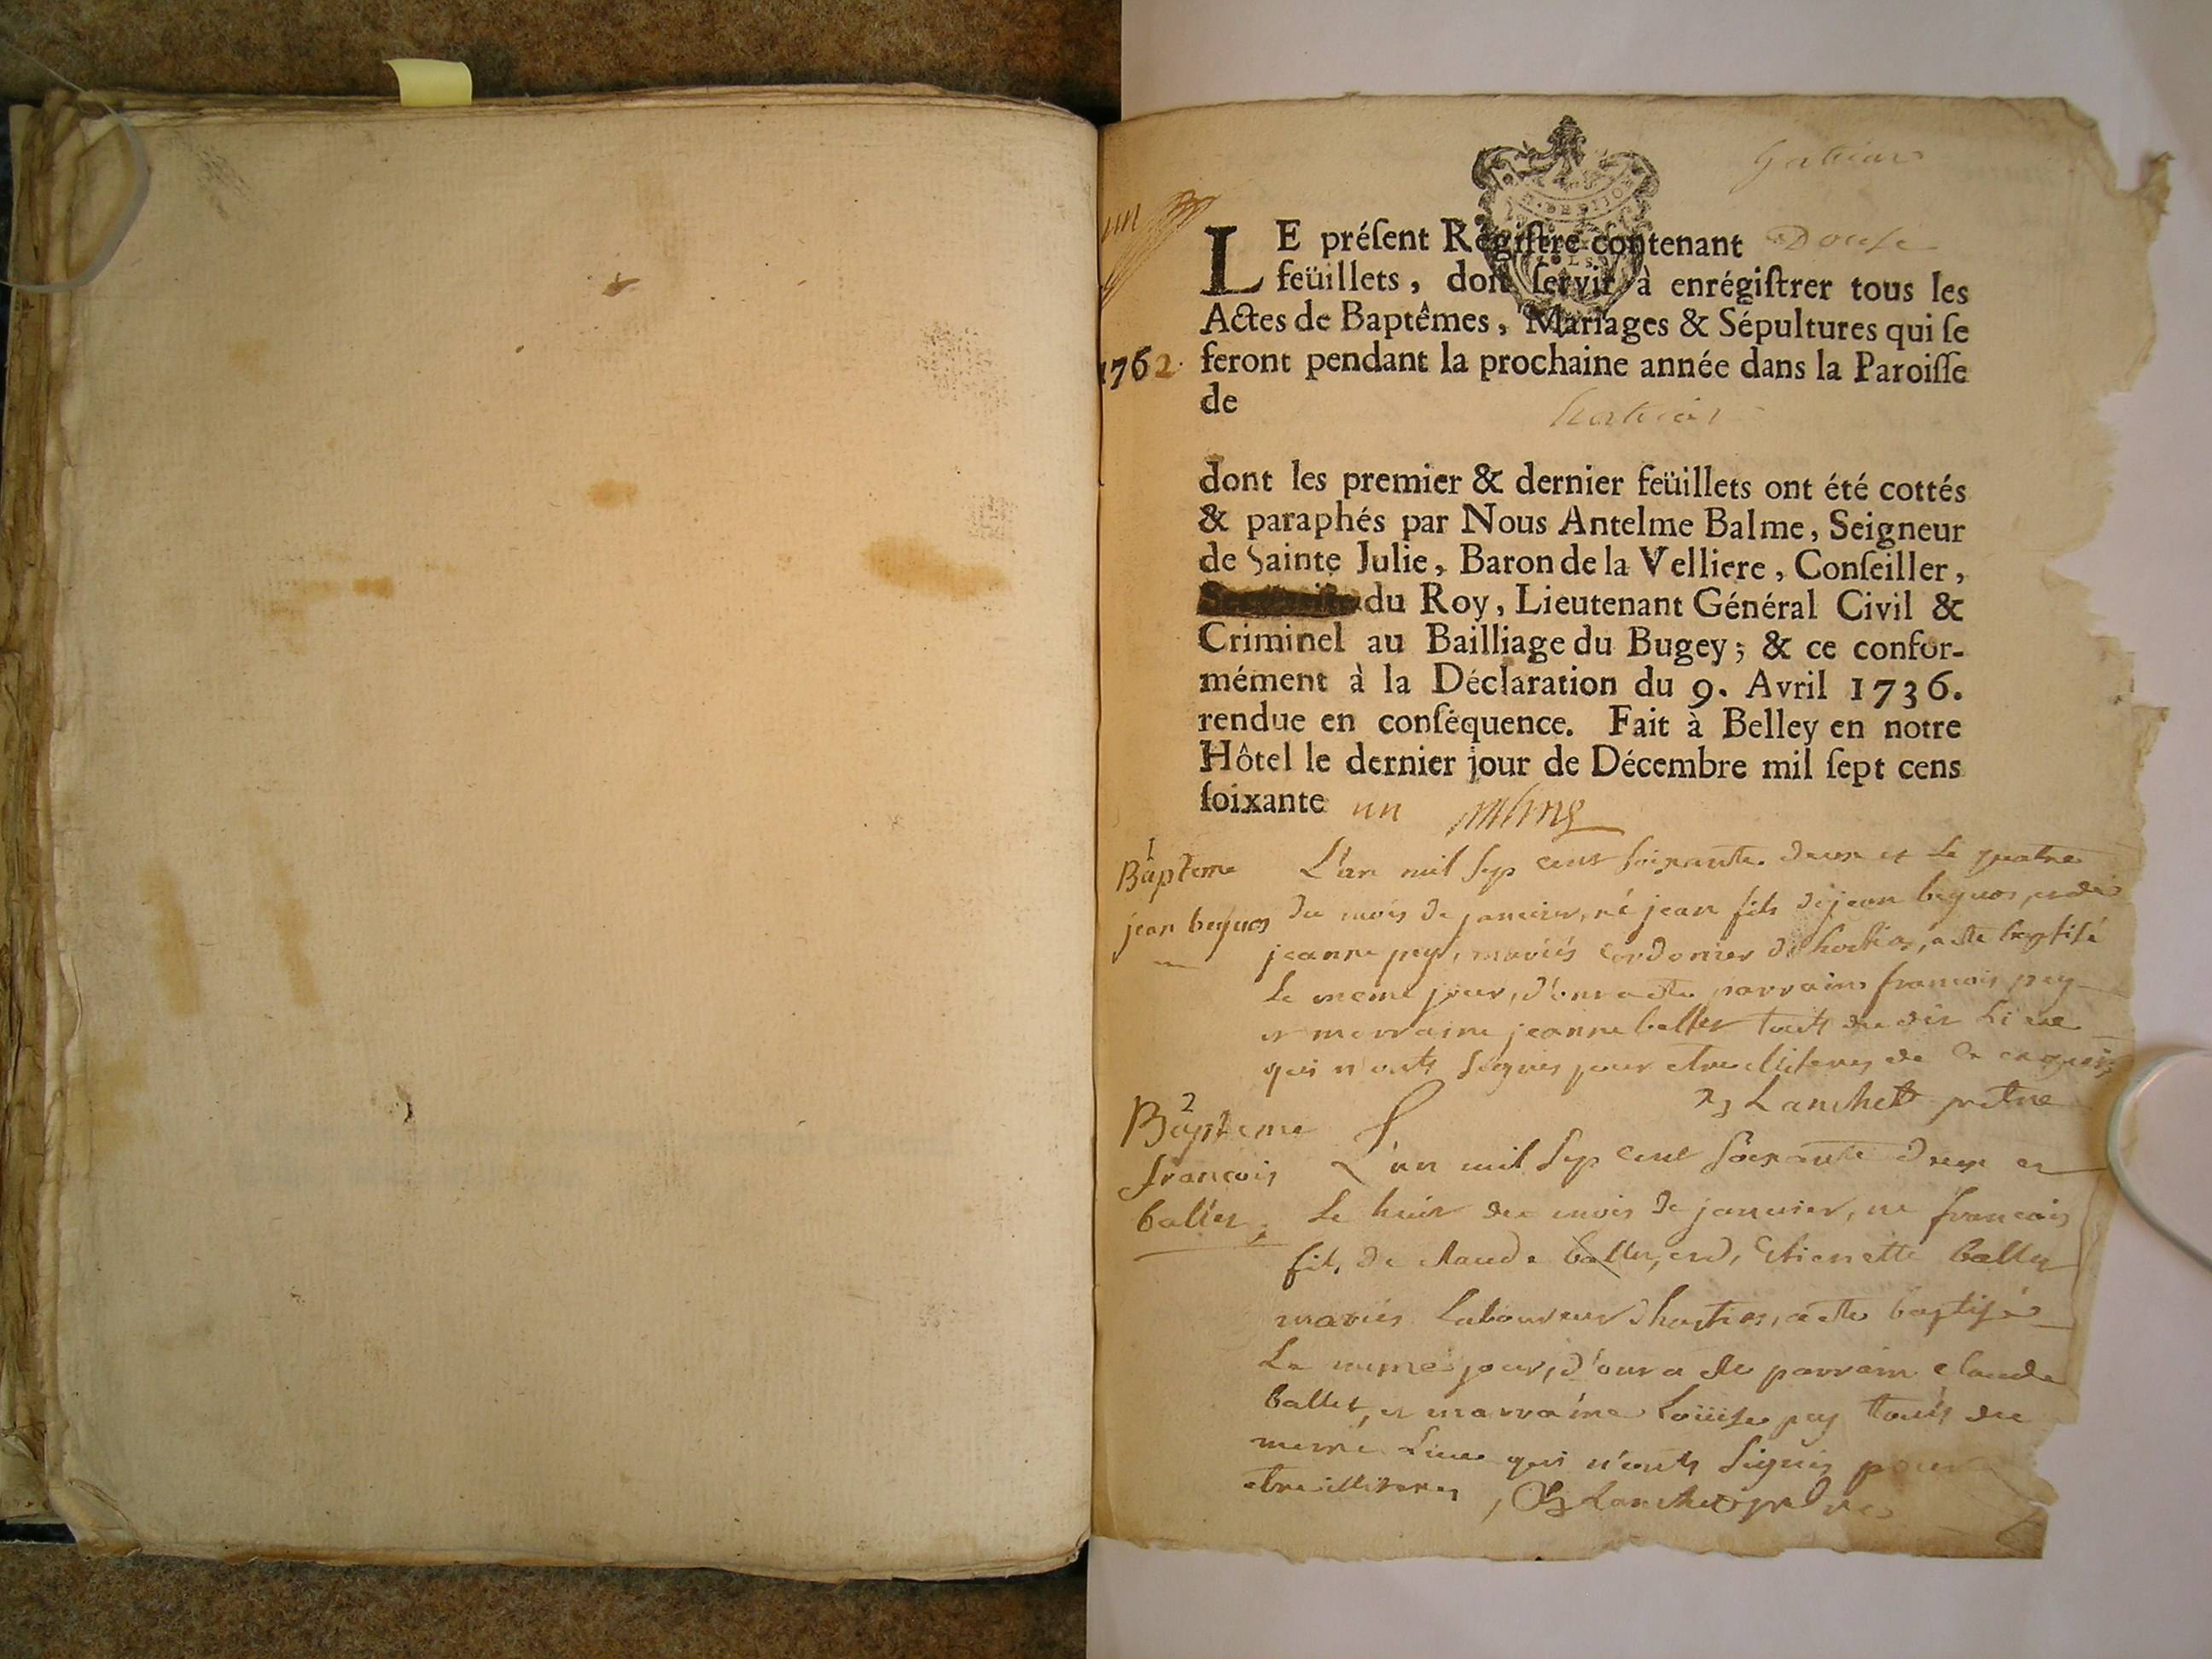 un
LE préſent Régiſtre contenant Douſe
feüillets, doit ſervir à enrégiſtrer tous les
Actes de Baptêmes, Mariages & Sépultures qui ſe
1762 feront pendant la prochaine année dans la Paroiſſe
de
dont les premier & dernier feüillets ont été cottés
& paraphés par Nous Antelme Balme, Seigneur
de Sainte Julie, Baron de la Velliere, Conſeiller,
du Roy, Lieutenant Général Civil &
Criminel au Bailliage du Bugey; & ce confor-
mément à la Déclaration du 9. Avril 1736.
rendue en conſéquence. Fait à Belley en notre
Hôtel le dernier jour de Décembre mil ſept cens
ſoixante un
1
Bapteme
jean beguos
L'an mil sep cent soixante deux et le quatre
du mois de janvier, né jean fils de jean beguos, et de
jeanne pey, mariés cordonier baptisé
le meme jour, parrain francois pey
et marraine jeanne ballet touts du dit lieu
qui n'onts signés pour etre illiteres de ce enquis
Lanchet pretre
2
Bapteme
francois
ballet
L'an mil sep cent soixante deux et
le huit du mois de janvier, né francois
fils de claude ballet, et d'etienette ballet
mariés laboureur baptisé
le meme jour, parrain claude
ballet, et marraine Loüise pey touts du
meme lieu qui n'onts signés pour
etre illiteres, Lanchet pretre